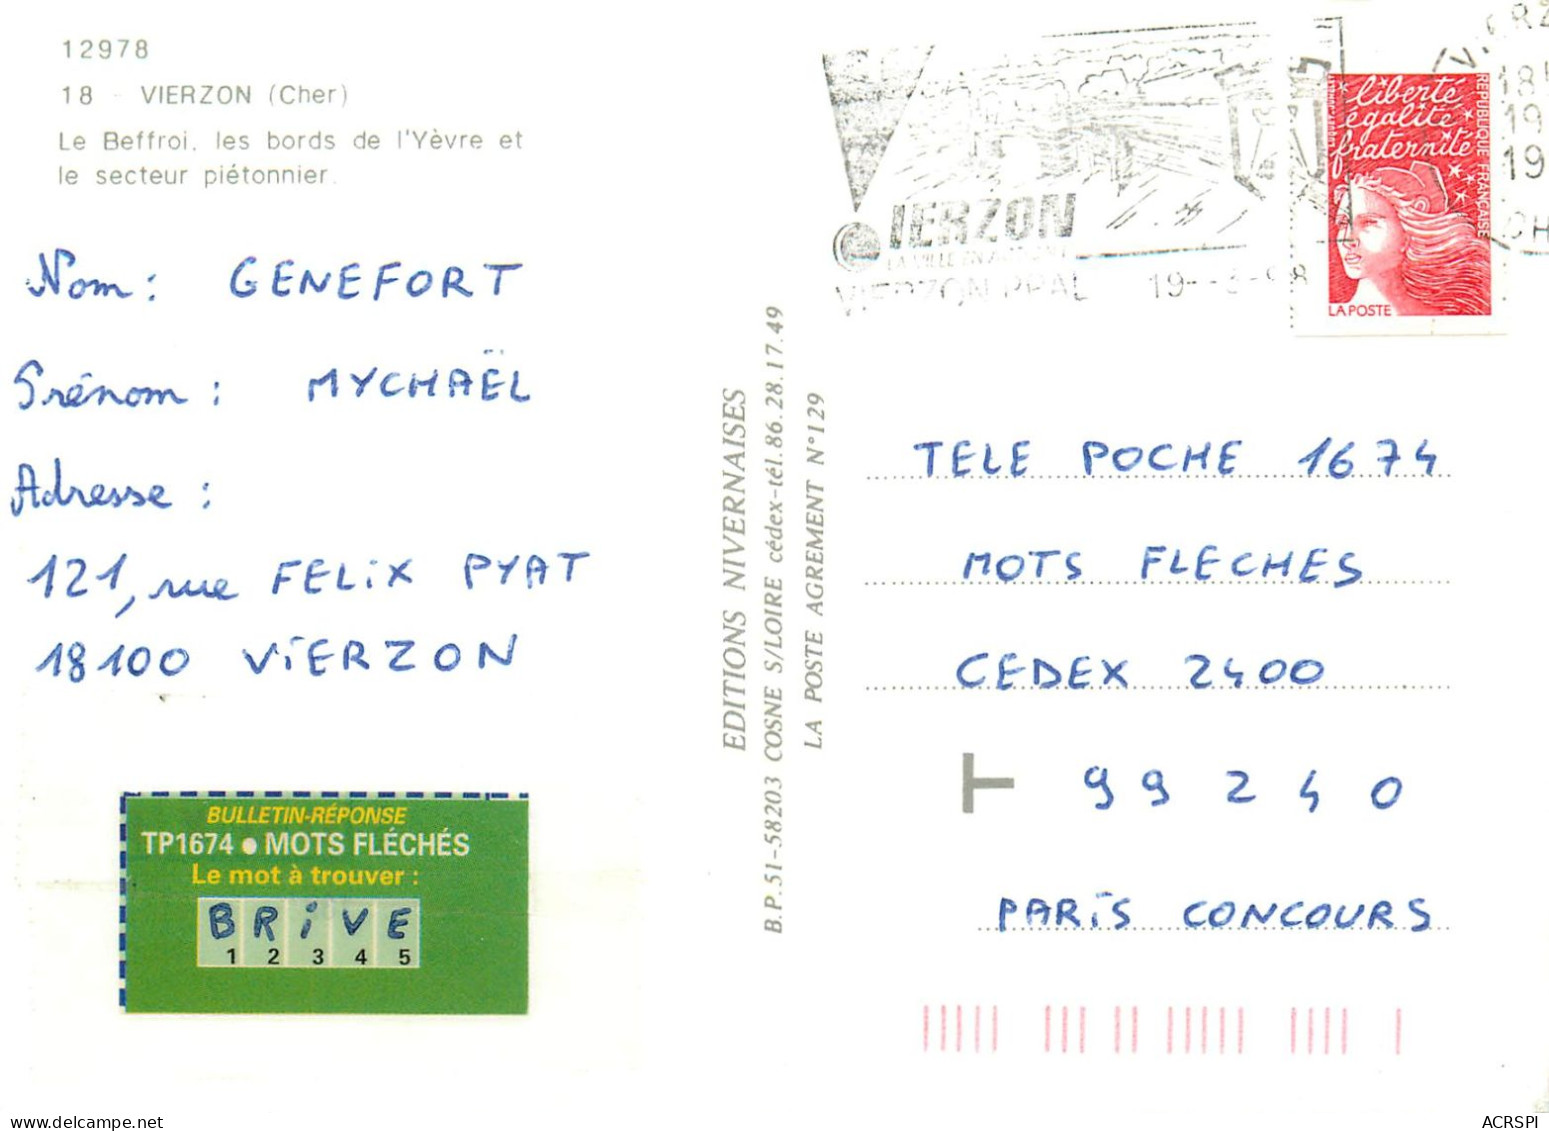 12978
18 - VIERZON (Cher)
Le Beffroi, les bords de l'Yèvre et
le secteur piétonnier.
Nom : GENEFORT
Prénom : MYCHAËL
Adresse :
121, rue FELIX PYAT
18100 VIERZON
BULLETIN-RÉPONSE
TP1674 ● MOTS FLÉCHÉS
Le mot à trouver :
BRIVE
1 2 3 4 5
EDITIONS NIVERNAISES
B.P.51-58203 COSNE S/LOIRE cédex-tél.86.28.17.49
LA POSTE AGREMENT N°129
IERZON
VIERZON PPAL 19-3-98
liberté
égalité
fraternité
REPUBLIQUE FRANÇAISE
LA POSTE
TELE POCHE 1674
MOTS FLECHES
CEDEX 2400
T 99240
PARIS CONCOURS
ACRSPI